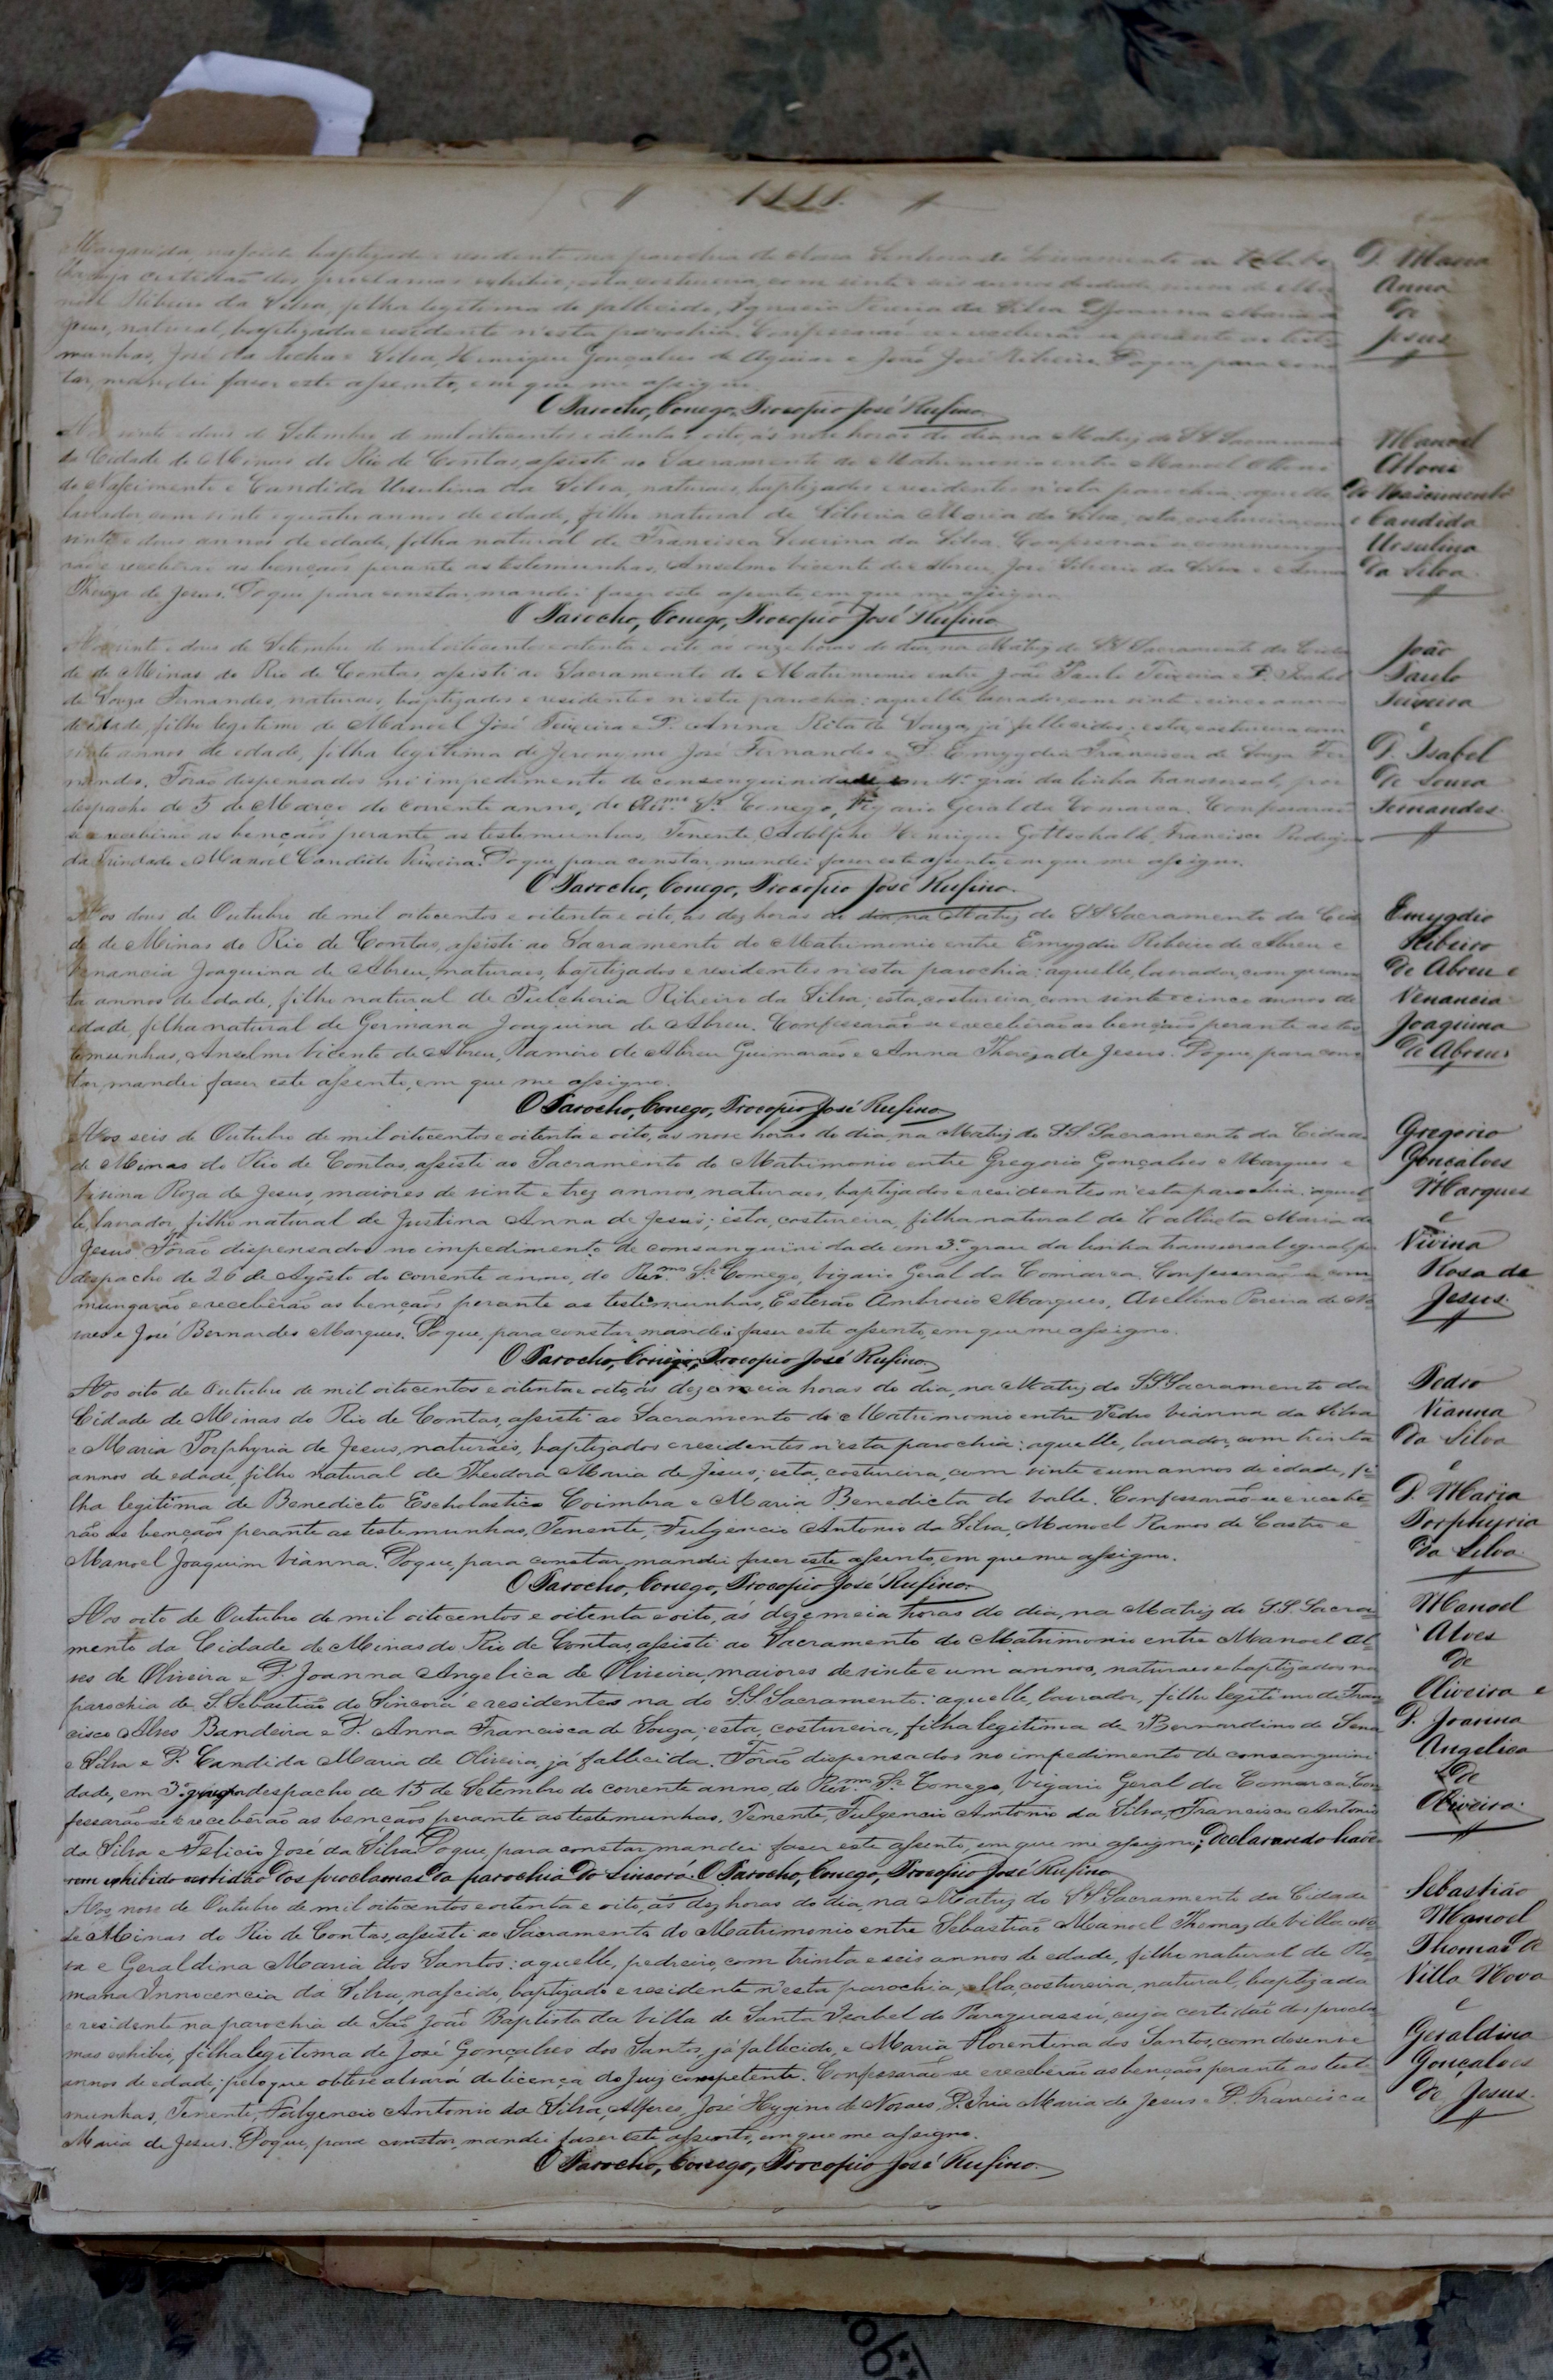 1888.
Margarida, nascido baptizado e residente na parochia de Nossa Senhora do Livramento da Villa do
cuja certidão dos proclamas exhibio; esta costureira, com vinte e seis annos de edade, viuva de Ma
noel Ribeiro da Silva, filha legitima do fallecido, Ignacio Pereira da Silva e Joanna Maria de
Jesus, natural, baptizada e residente n'esta parochia. Confessarão-se e receberão-se perante as teste
manhas, José da Rocha e Silva, Henrique Gonçalves de Aguiar e João José Ribeiro. Do que, para cons
tar, mandei faser este assento, em que me assigno.
O Parocho, Conego, Procopio José Rufino.
D. Maria
Anna
de
Jesus
Aos vinte e dous de Setembro de mil oitocentos e oitenta e oito, ás nove horas do dia na Matriz do SS Sacramento
da Cidade de Minas do Rio de Contas, assisti ao Sacramento do Matrimonio entre Manoel Altoni
do Nascimento e Candida Ursulina da Silva, naturaes, baptizados e residentes n'esta parochia: aquelle
lavrador com vinte e quatro annos de edade, filho natural de Silveria Maria da Silva; esta, costureira, com
vinte e dous annos de edade, filha natural de Francisca Severina da Silva. Confessarão-se commun
rão e receberão as bençãos perante as testemunhas, Anselmo Vicente de Abreu, José Silverio da Silva e Anna
Thereza de Jesus. Do que, para constar, mandei faser este assento, em que me assigno.
O Parocho, Conego, Procopio José Rufino
Manoel
Altoni
do Nascimento
e Candida
Ursulina
da Silva.
Aos vinte e dous de Setembro de mil oitocentos e oitenta e oito, ás onze horas do dia, na Matriz do SS Sacramento da Cida
de de Minas do Rio de Contas, assisti ao Sacramento do Matrimonio entre João Paulo Teixeira e D. Isabel
de Souza Fernandes, naturaes, baptizados e residentes n'esta parochia: aquelle lavrador com vinte e cinco annos
de edade, filho legitimo de Manoel José Teixeira e D. Anna Rita de Souza, já fallecidos; esta, costureira com
vinte annos de edade, filha legitima de Jeronymo José Fernandes e D. Emygdia Francisca de Souza Fer
nandes. Forão dispensados no impedimento de consanguinidade em 4º gráo da linha transversal, por
despacho de 5 de Março do corrente anno, do Rev.mo Sr. Conego, Vigario Geral da Comarca. Confessarão
se e receberão as bençãos perante as testemunhas, Tenente, Adolpho Henrique Gottschalk, Francisco Rodrigues
da Trindade e Manoel Candido Teixeira. Do que, para constar, mandei faser este assento em que me assigno.
O Parocho, Conego, Procopio José Rufino.
João
Paulo
Teixeira
e
D. Isabel
de Souza
Fernandes
Aos dous de Outubro de mil oitocentos e oitenta e oito, as dez horas do dia, na Matriz do SS Sacramento da Cida
de de Minas do Rio de Contas, assisti ao Sacramento do Matrimonio entre Emygdio Ribeiro de Abreu e
Venancia Joaquina de Abreu, naturaes, baptizados e residentes n'esta parochia: aquelle, lavrador, com quaren
ta annos de edade, filho natural de Pulcheria Ribeiro da Silva; esta, costureira, com vinte e cinco annos de
edade, filha natural de Germana Joaquina de Abreu. Confessarão-se e receberão as bençãos perante as tes
temunhas, Anselmo Vicente de Abreu, Ramiro de Abreu Guimarães e Anna Thereza de Jesus. Do que, para cons
tar, mandei faser este assento, em que me assigno.
O Parocho, Conego, Procopio José Rufino
Emygdio
Ribeiro
de Abreu e
Venancia
Joaquina
de Abreu
Aos seis de Outubro de mil oitocentos e oitenta e oito, as nove horas do dia, na Matriz do SS Sacramento da Cidade
de Minas do Rio de Contas, assisti ao Sacramento do Matrimonio entre Gregorio Gonçalves Marques e
Vivina Roza de Jesus, maiores de vinte e trez annos, naturaes, baptizados e residentes n'esta parochia: aquel
le, lavrador, filho natural de Justina Anna de Jesus; esta, costureira, filha natural de Callista Maria de
Jesus. Forão dispensados no impedimento de consanguinidade em 3º grau da linha transversal egual, por
despacho de 26 de Agosto do corrente anno, do Rev.mo Sr. Conego, Vigario Geral da Comarca. Confessarão-se, com
mungarão e receberão as bençãos perante as testemunhas, Estevão Ambrosio Marques, Avellino Pereira de No
vaes e José Bernardes Marques. Do que, para constar, mandei faser este assento, em que me assigno.
O Parocho, Conego, Procopio José Rufino
Gregorio
Gonçalves
Marques
e
Vivina
Rosa de
Jesus.
Aos oito de Outubro de mil oitocentos e oitenta e oito, ás dez e meia horas do dia, na Matriz do SS Sacramento da
Cidade de Minas do Rio de Contas, assisti ao Sacramento do Matrimonio entre Pedro Vianna da Silva
e Maria Porphyria de Jesus, naturáes, baptizados e residentes n'esta parochia: aquelle, lavrador, com trinta
annos de edade, filho natural de Theodora Maria de Jesus; esta, costureira, com vinte e um annos de edade, fi
lha legitima de Benedicto Escholastico Coimbra e Maria Benedicta do Valle. Confessarão-se e recebe
rão as bençãos perante as testemunhas, Tenente, Fulgencio Antonio da Silva, Manoel Ramos de Castro e
Manoel Joaquim Vianna. Do que, para constar, mandei faser este assento, em que me assigno.
O Parocho, Conego, Procopio José Rufino.
Pedro
Vianna
da Silva
e
D. Maria
Porphyria
da Silva.
Aos oito de Outubro de mil oitocentos e oitenta e oito, ás dez e meia horas do dia, na Matriz do S.S. Sacra-
mento da Cidade de Minas do Rio de Contas, assisti ao Sacramento do Matrimonio entre Manoel Al-
ves de Oliveira e D. Joanna Angelica de Oliveira, maiores de vinte e um annos, naturaes e baptizados na
parochia de S. Sebastião do Sincorá e residentes na do S.S. Sacramento: aquelle, lavrador, filho legitimo de Fran
cisco Alves Bandeira e D. Anna Francisca de Souza; esta, costureira, filha legitima de Bernardino de Sena
e Silva e D. Candida Maria de Oliveira, já fallecida. Forão dispensados no impedimento de consanguini
dade, em 3º despacho de 15 de Setembro do corrente anno, do Rev.mo Sr. Conego, Vigario Geral da Comarca. Con-
fessarão-se e receberão as bençãos perante as testemunhas, Tenente, Fulgencio Antonio da Silva, Francisco Antonio
da Silva e Felicio José da Silva. Do que, para constar mandei faser este assento, em que me assigno; declarando have-
rem exhibido certidão dos proclamas da parochia do Sincorá. O Parocho, Conego, Procopio José Rufino
Manoel
Alves
de
Oliveira e
D. Joanna
Angelica
de
Oliveira.
Aos nove de Outubro de mil oitocentos e oitenta e oito, ás dez horas do dia, na Matriz do SS Sacramento da Cidade
de Minas do Rio de Contas, assisti ao Sacramento do Matrimonio entre Sebastião Manoel Thomaz de Villa No-
va e Geraldina Maria dos Santos: aquelle, pedreiro, com trinta e seis annos de edade, filho natural de Ro-
mana Innocencia da Silva, nascido, baptizado e residente n'esta parochia; ella, costureira, natural, baptizada
e residente na parochia de São João Baptista da Villa de Santa Isabel do Paraguassú, cuja certidão dos procla
mas exhibio, filha legitima de José Gonçalves dos Santos, já fallecido, e Maria Florentina dos Santos, com desenove
annos de edade; pelo que obteve alvará de licença do Juiz competente. Confessarão-se e receberão as bençãos perante as teste
munhas, Tenente, Fulgencio Antonio da Silva, Alferes, José Hygino de Novaes, D. Iria Maria de Jesus e D. Francisca
Maria de Jesus. Do que, para constar, mandei faser este assento, em que me assigno.
O Parocho, Conego, Procopio José Rufino.
Sebastião
Manoel
Thomas de
Villa Nova
e
Geraldina
Gonçalves
de Jesus.